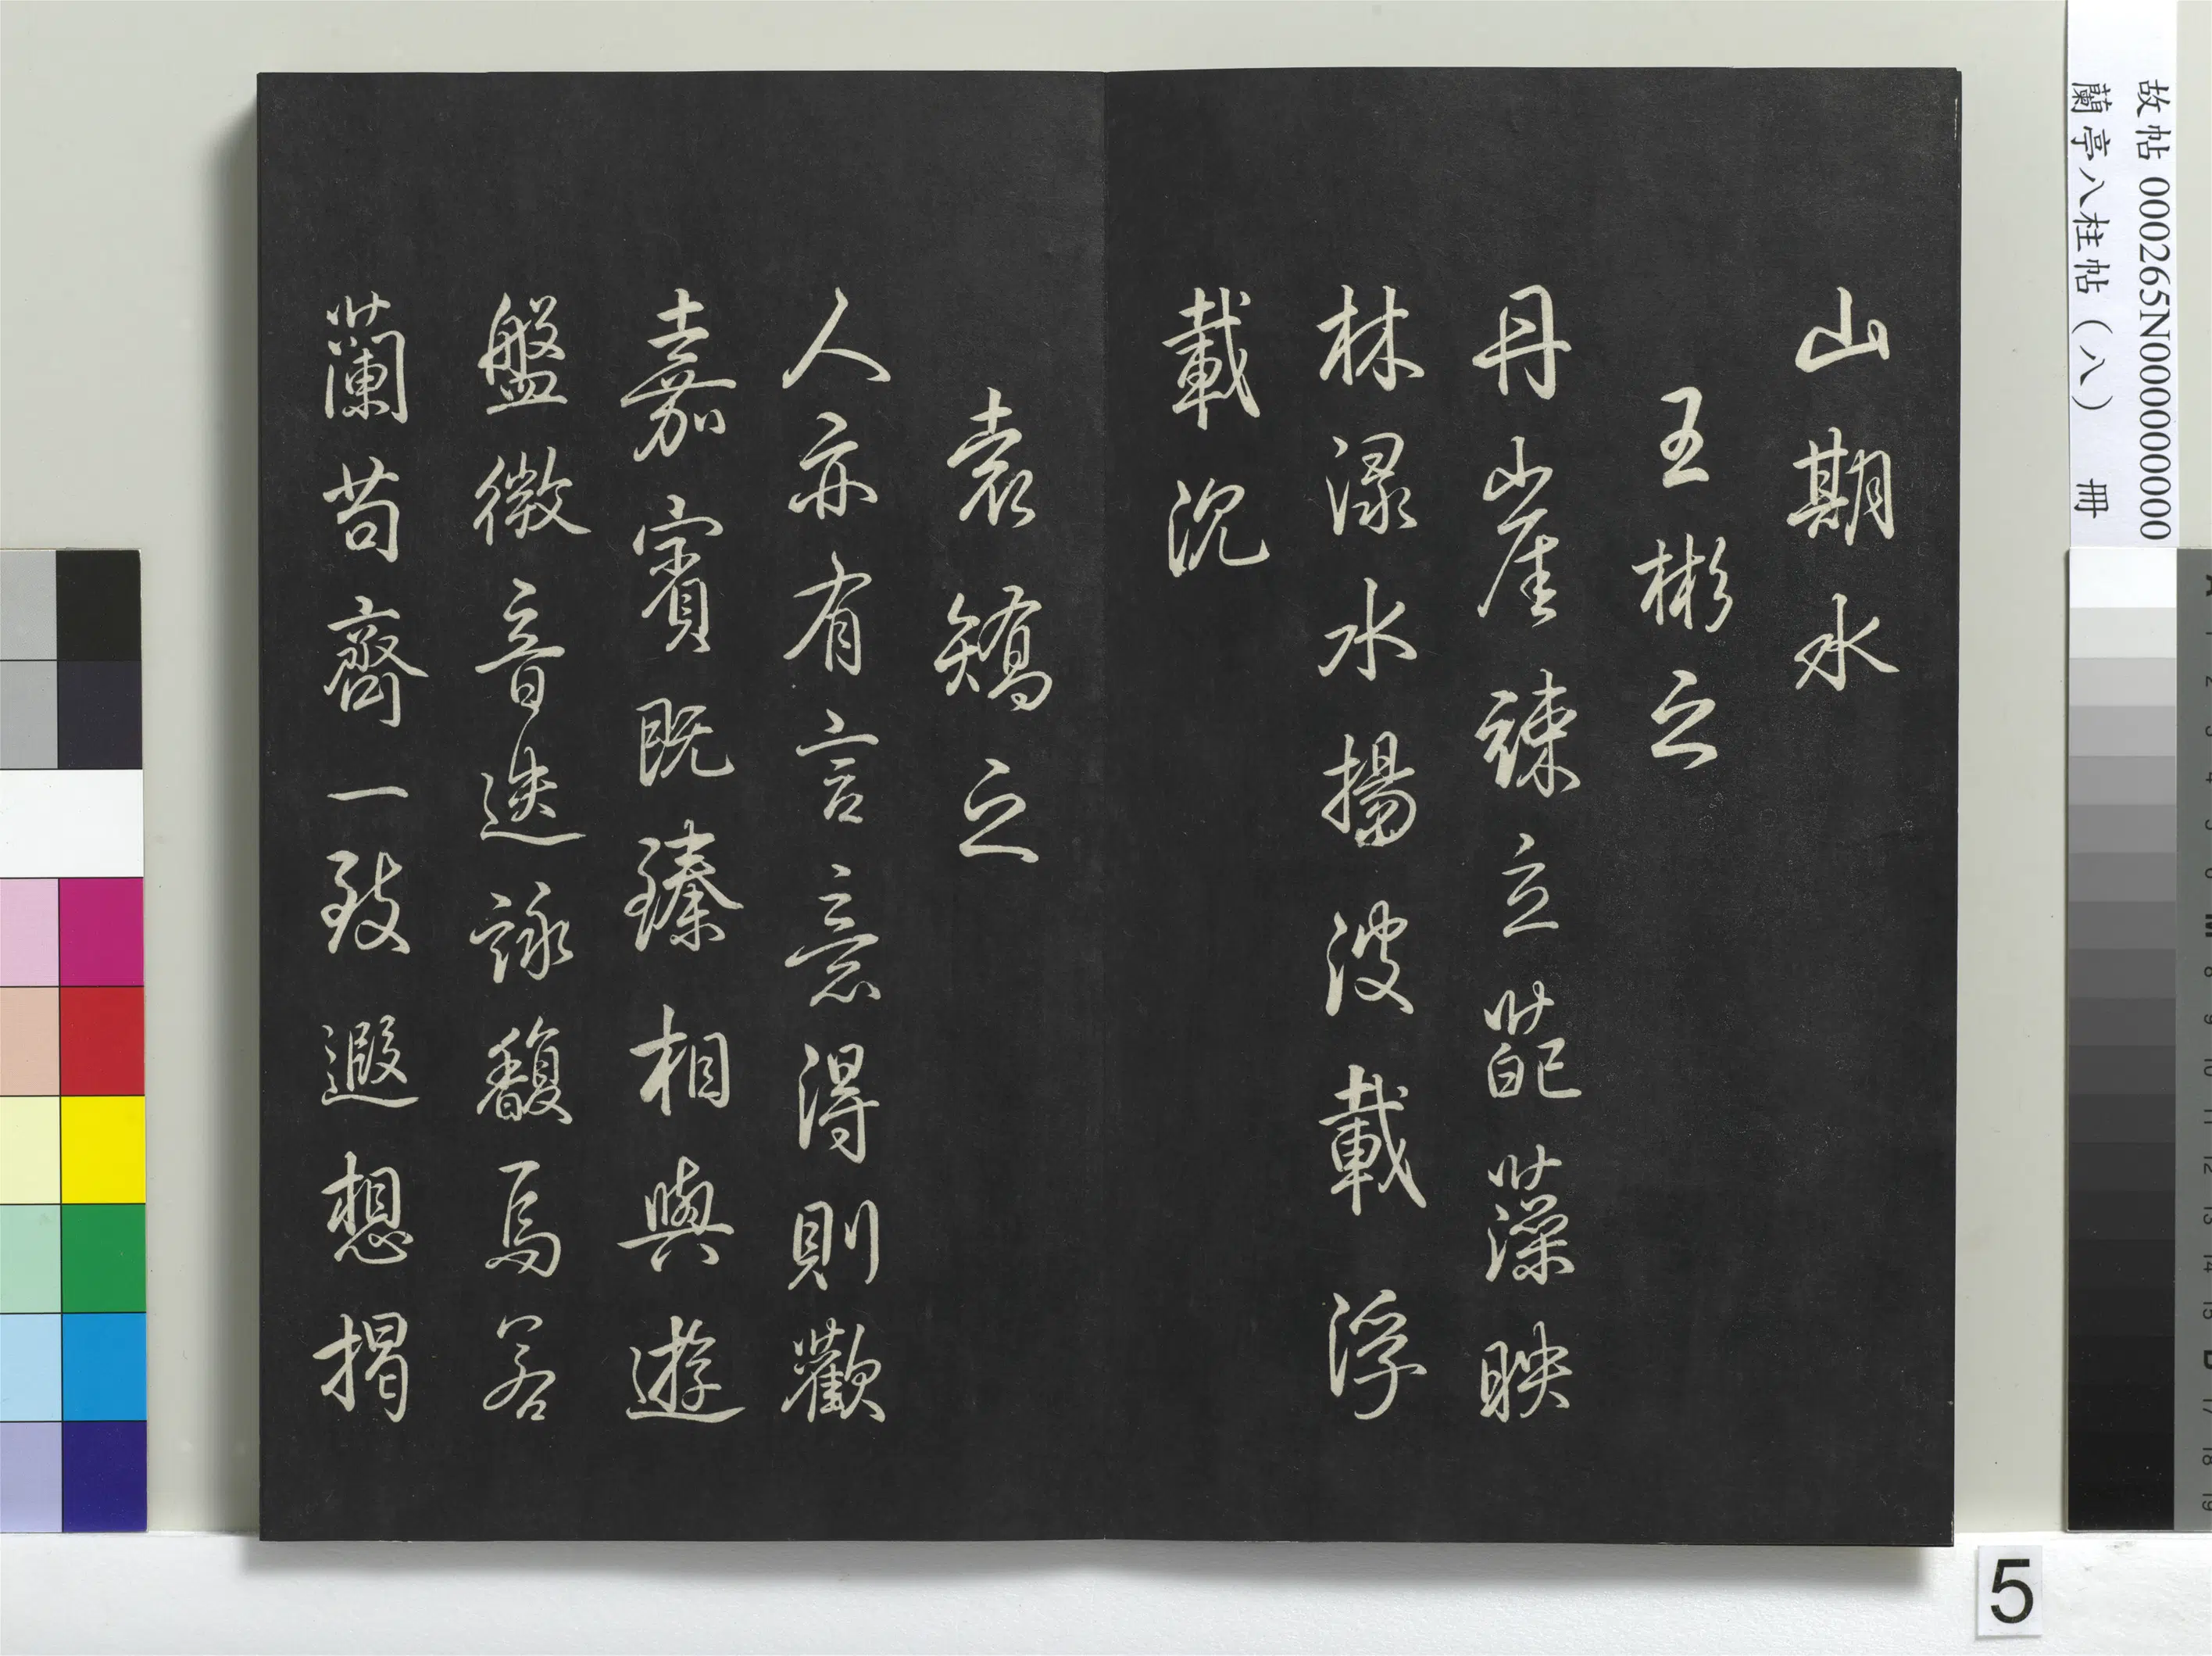 山期水
王彬之
丹崖竦立葩藻映
林渌水揚波載浮
載沉
袁矯之
人亦有言意得則歡
嘉賓既臻相與遊
盤微音迭詠馥焉若
蘭苟齊一致遐想揭
故帖 000265N000000000
蘭亭八柱帖（八） 冊
5